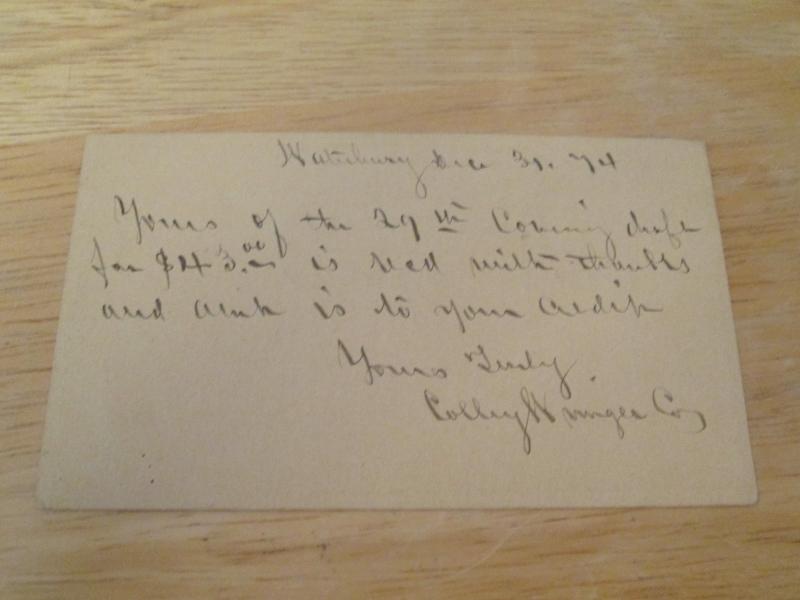 Waterbury Dec 31. 74
Yours of the 29th Covering draft
for $43.00 is recd with thanks
and amt is to your credit
Yours Truly
Colby Wringer Co,